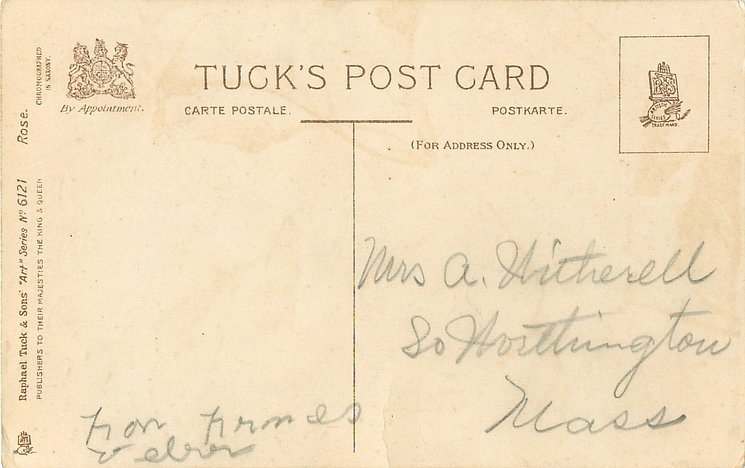 TUCK'S POST CARD
CARTE POSTALE.
POSTKARTE.
(FOR ADDRESS ONLY.)
By Appointment.
CHROMOGRAPHED
IN SAXONY.
Rose.
Raphael Tuck & Sons' "Art" Series Nº 6121
PUBLISHERS TO THEIR MAJESTIES THE KING & QUEEN
TRADE MARK.
Mrs A. Witherell
So Worthington
Mass